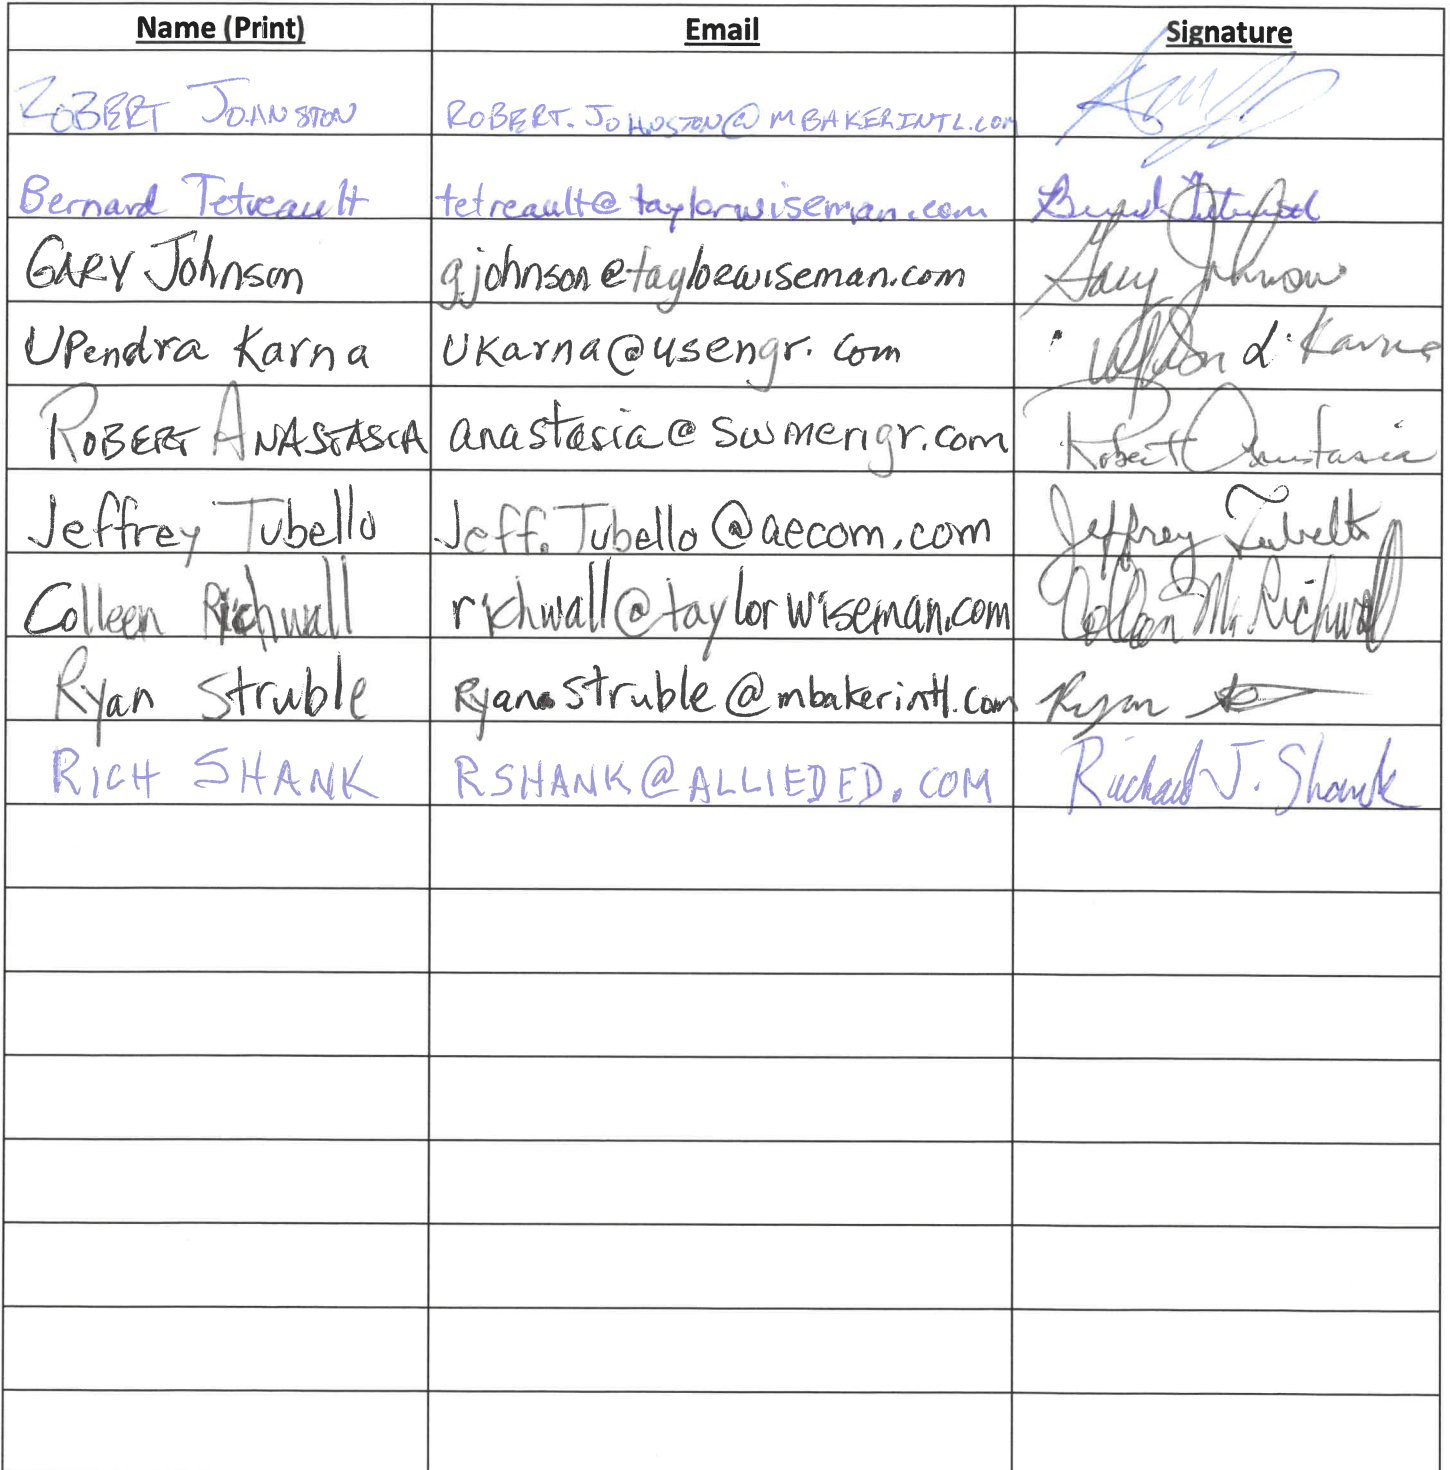 Name (Print) Email Signature
ROBERT JOHNSTON ROBERT.JOHNSTON@MBAKERINTL.COM
Bernard Tetreault tetreault@taylorwiseman.com Bernard Tetreault
GARY Johnson gjohnson@taylorwiseman.com Gary Johnson
UPendra Karna UKarna@usengr.com Karna
ROBERT ANASTASIA anastasia@swmengr.com Robert Anastasia
Jeffrey Tubello Jeff.Tubello@aecom.com Jeffrey Tubello
Colleen Richwall richwall@taylorwiseman.com Colleen M. Richwall
Ryan Struble Ryan.Struble@mbakerintl.com Ryan
RICH SHANK RSHANK@ALLIEDED.COM Richard J. Shank